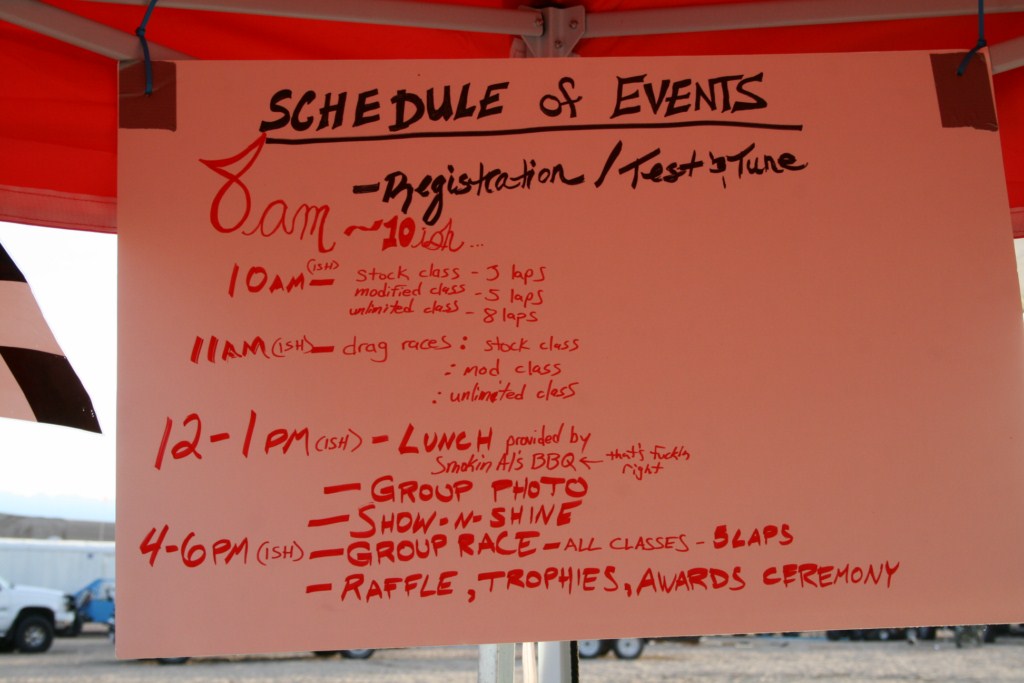 SCHEDULE of EVENTS
8am - Registration / Test & Tune
~10ish...
10AM (ISH) - stock class - 5 laps
modified class - 5 laps
unlimited class - 8 laps
11AM (ISH) - drag races : stock class
: mod class
: unlimited class
12-1PM (ISH) - LUNCH provided by
Smokin Al's BBQ ← that's fuckin
right
- GROUP PHOTO
- SHOW-N-SHINE
4-6PM (ISH) - GROUP RACE - ALL CLASSES - 5 LAPS
- RAFFLE, TROPHIES, AWARDS CEREMONY